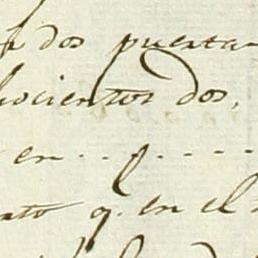 dos puerta
hocientos dos,
en . . . . . . . .
q. en el